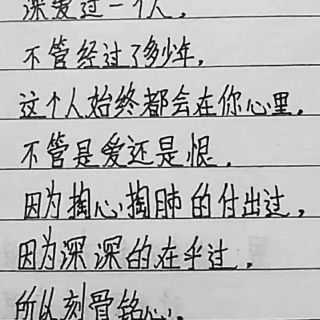 深爱过一个人，
不管经过了多少年，
这个人始终都会在你心里。
不管是爱还是恨，
因为掏心掏肺的付出过，
因为深深的在乎过，
所以刻骨铭心。